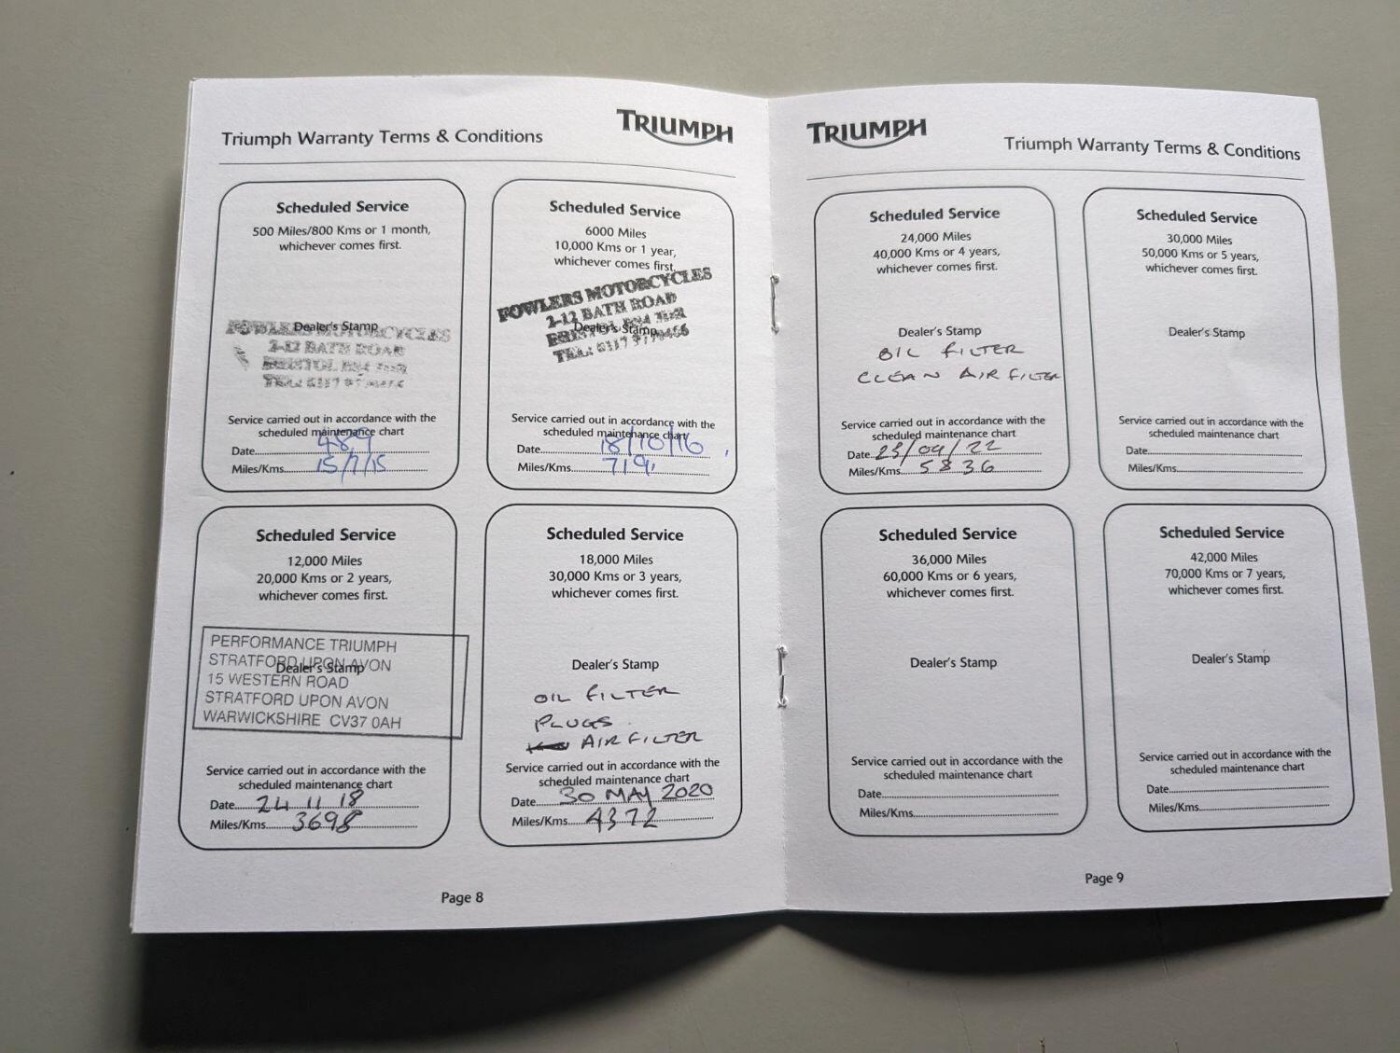 Triumph Warranty Terms & Conditions
TRIUMPH
Scheduled Service
500 Miles/800 Kms or 1 month,
whichever comes first.
Dealer's Stamp
FOWLERS MOTORCYCLES
2-12 BATH ROAD
BRISTOL
Service carried out in accordance with the
scheduled maintenance chart
Date 489
Miles/Kms 15/7/15
Scheduled Service
6000 Miles
10,000 Kms or 1 year,
whichever comes first.
FOWLERS MOTORCYCLES
2-12 BATH ROAD
Dealer's Stamp
BRISTOL
TEL: 0117 9770466
Service carried out in accordance with the
scheduled maintenance chart
Date 18/10/16
Miles/Kms 719
Scheduled Service
12,000 Miles
20,000 Kms or 2 years,
whichever comes first.
PERFORMANCE TRIUMPH
STRATFORD UPON AVON
Dealer's Stamp
15 WESTERN ROAD
STRATFORD UPON AVON
WARWICKSHIRE CV37 0AH
Service carried out in accordance with the
scheduled maintenance chart
Date 24 11 18
Miles/Kms 3698
Scheduled Service
18,000 Miles
30,000 Kms or 3 years,
whichever comes first.
Dealer's Stamp
OIL FILTER
PLUGS
AIR FILTER
Service carried out in accordance with the
scheduled maintenance chart
Date 30 MAY 2020
Miles/Kms 4372
Page 8
TRIUMPH
Triumph Warranty Terms & Conditions
Scheduled Service
24,000 Miles
40,000 Kms or 4 years,
whichever comes first.
Dealer's Stamp
OIL FILTER
CLEAN AIR FILTER
Service carried out in accordance with the
scheduled maintenance chart
Date 23/09/22
Miles/Kms 5836
Scheduled Service
30,000 Miles
50,000 Kms or 5 years,
whichever comes first.
Dealer's Stamp
Service carried out in accordance with the
scheduled maintenance chart
Date
Miles/Kms
Scheduled Service
36,000 Miles
60,000 Kms or 6 years,
whichever comes first.
Dealer's Stamp
Service carried out in accordance with the
scheduled maintenance chart
Date
Miles/Kms
Scheduled Service
42,000 Miles
70,000 Kms or 7 years,
whichever comes first.
Dealer's Stamp
Service carried out in accordance with the
scheduled maintenance chart
Date
Miles/Kms
Page 9